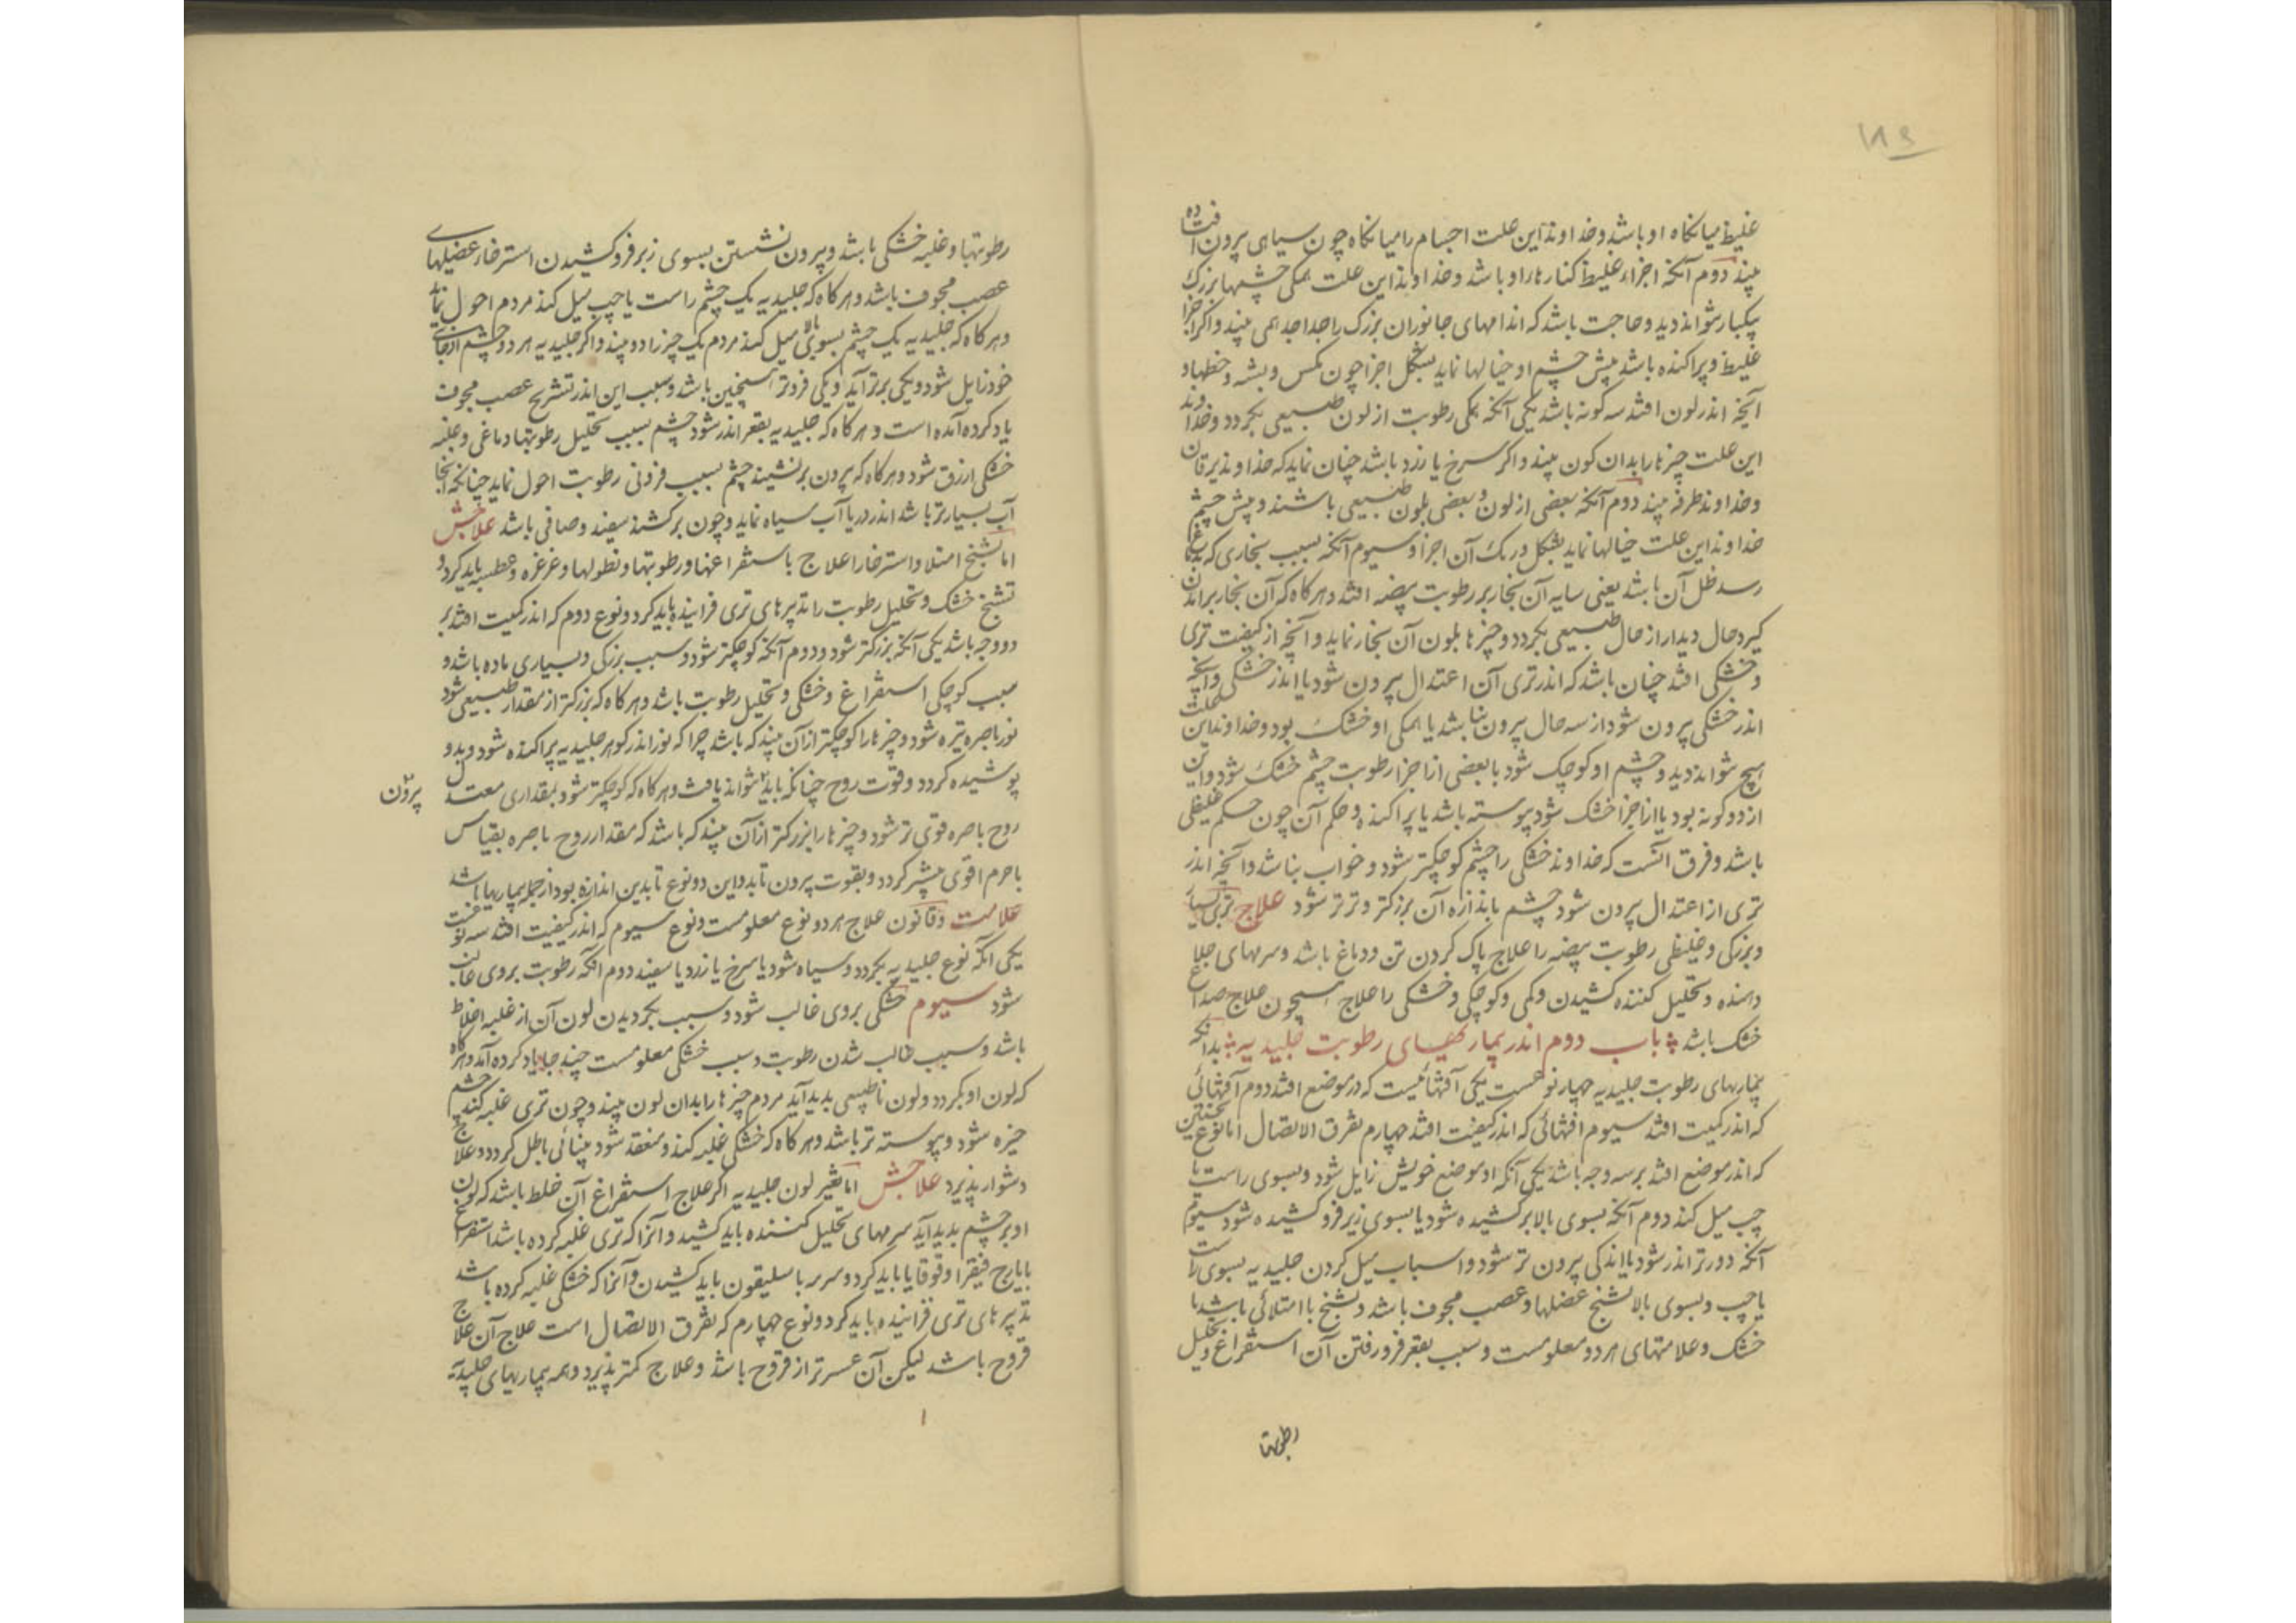 ۱۸۹
غلیظ میانکاه او باشد و خداوند این علت اجسام را میانکاه چون سیاهی بیرون افتاده
بیند دوم آنکه اجزاء غلیظ کنارها را او باشد و خداوند این علت همکی چشمها بزرک
بیکبار نتواند دید و حاجت باشد که اندامهای جانوران بزرک را جدا جدا همی بیند و اکر اجزا
غلیظ و پراکنده باشد پیش چشم او خیالها نماید بشکل اجزا چون مکس و پشه و خطها و
آنچه اندر لون افتد سه کونه باشد یکی آنکه همکی رطوبت از لون طبیعی بکردد و خداوند
این علت چیزها را بدان کون بیند و اکر سرخ یا زرد باشد چنان نماید که خداوند یرقان
و خداوند طرفه بیند دوم آنکه بعضی از لون و بعضی بلون طبیعی باشند و پیش چشم
خداوند این علت خیالها نماید بشکل و رنک آن اجزا و سیوم آنکه بسبب بخاری که بدماغ
رسد ظل آن باشد یعنی سایه آن بخار بر رطوبت بیضه افتد و هرکاه که آن بخار بر اندن
کیرد حال دیدار از حال طبیعی بکردد و چیزها بلون آن بخار نماید و آنچه از کیفیت تری
و خشکی افتد چنان باشد که اندر تری آن اعتدال بیرون شود یا اندر خشکی و آنچه
اندر خشکی بیرون شود از سه حال بیرون نباشد یا همکی او خشک بود و خداوند این علت
هیچ نتواند دید و چشم او کوچک شود یا بعضی از اجزا رطوبت چشم خشک شود و این
از دو کونه بود یا از اجزا خشک شود پیوسته باشد یا پراکنده و حکم آن چون حکم غلیظی
باشد و فرق آنست که خداوند خشکی را چشم کوچکتر شود و خواب نباشد و آنچه اندر
تری از اعتدال بیرون شود چشم باندازه آن بزرکتر و تر تر شود علاج تری بسیار
و بزرکی و غلیظی رطوبت بیضه را علاج پاک کردن تن و دماغ باشد و سرمهای جلا
دهنده و تحلیل کننده کشیدن و کمی و کوچکی و خشکی را علاج همچون علاج صداع
خشک باشد باب دوم اندر بیماریهای رطوبت جلیدیه بدانکه
بیماریهای رطوبت جلیدیه چهار نوعست یکی آفتهائیست که در موضع افتد دوم آفتهائی
که اندر کمیت افتد سیوم آفتهائی که اندر کیفیت افتد چهارم تفرق الاتصال اما نوع نخستین
که اندر موضع افتد بر سه وجه باشد یکی آنکه او موضع خویش زایل شود و بسوی راست یا
چپ میل کند دوم آنکه بسوی بالا بر کشیده شود یا بسوی زیر فرو کشیده شود سیوم
آنکه دورتر اندر شود یا اندکی بیرون تر شود و اسباب میل کردن جلیدیه بسوی راست
یا چپ و بسوی بالا تشنج عضلها و عصب مجوف باشد و تشنج یا امتلائی باشد یا
خشک و علامتهای هر دو معلومست و سبب بقعر فرو رفتن آن استفراغ و تحلیل
رطوبتها
رطوبتها و غلبه خشکی باشد و بیرون نشستن بسوی زیر فرو کشیدن استرخاء عضلهای
عصب مجوف باشد و هرکاه که جلیدیه یک چشم راست یا چپ میل کند مردم احول نماید
و هرکاه که جلیدیه یک چشم بسوی بالا میل کند مردم یک چیز را دو بیند و اکر جلیدیه هر دو چشم از جای
خود زایل شود و یکی برتر آید و یکی فروتر همچنین باشد و سبب این اندر تشریح عصب مجوف
یاد کرده آمده است و هرکاه که جلیدیه بقعر اندر شود چشم بسبب تحلیل رطوبتها دماغی و غلبه
خشکی ازرق شود و هرکاه که بیرون بر نشیند چشم بسبب فزونی رطوبت احول نماید چنانکه آنجا
آب بسیارتر باشد اندر دریا آب سیاه نماید و چون برکشند سفید و صافی باشد علاجش
اما تشنج امتلا و استرخا را علاج باستفراغها و رطوبتها و نطولها و غرغره و عطسه باید کرد و
تشنج خشک و تحلیل رطوبت را تدبیرهای تری فزاینده باید کرد و نوع دوم که اندر کمیت افتد بر
دو وجه باشد یکی آنکه بزرکتر شود و دوم آنکه کوچکتر شود و سبب بزرکی و بسیاری ماده باشد و
سبب کوچکی استفراغ و خشکی و تحلیل رطوبت باشد و هرکاه که بزرکتر از مقدار طبیعی شود
نور باصره تیره شود و چیزها را کوچکتر از آن بیند که باشد چرا که نور اندر کوهر جلیدیه پراکنده شود و بدو
پوشیده کردد و قوت روح چنانکه باید نتواند یافت و هرکاه که کوچکتر شود بمقداری معتدل
بیرون
روح باصره قوی تر شود و چیزها را بزرکتر از آن بیند که باشد که مقدار روح باصره بقیاس
با جرم اقوی بیشتر کردد و بقوت بیرون تابد و این دو نوع تا بدین اندازه بود از جمله بیماریها باشد
علامت و قانون علاج هر دو نوع معلومست و نوع سیوم که اندر کیفیت افتد سه نوعست
یکی آنکه نوع جلیدیه بکردد و سیاه شود یا سرخ یا زرد یا سفید دوم آنکه رطوبت بر وی غالب
شود سیوم خشکی بر وی غالب شود و سبب بکردیدن لون آن از غلبه اخلاط
باشد و سبب غالب شدن رطوبت و سبب خشکی معلومست چند جا یاد کرده آمد و هرکاه
که لون او بکردد و لون نا طبیعی پدید آید مردم چیزها را بدان لون بیند و چون تری غلبه کند چشم
خیره شود و پیوسته تر باشد و هرکاه که خشکی غلبه کند و منعقد شود بینائی باطل کردد و علاج
دشوار پذیرد علاجش اما تغیر لون جلیدیه اکر علاج استفراغ آن خلط باشد که لون
او بر چشم پدید آید سرمهای تحلیل کننده باید کشید و آنرا که تری غلبه کرده باشد استفراغ
بایارج فیقرا و قوقایا باید کرد و سرمه باسلیقون باید کشیدن و آنرا که خشکی غلبه کرده باشد
تدبیرهای تری فزاینده باید کرد و نوع چهارم که تفرق الاتصال است علاج آن علاج
قروح باشد لیکن آن عسرتر از قروح باشد و علاج کمتر پذیرد و همه بیماریهای جلیدیه